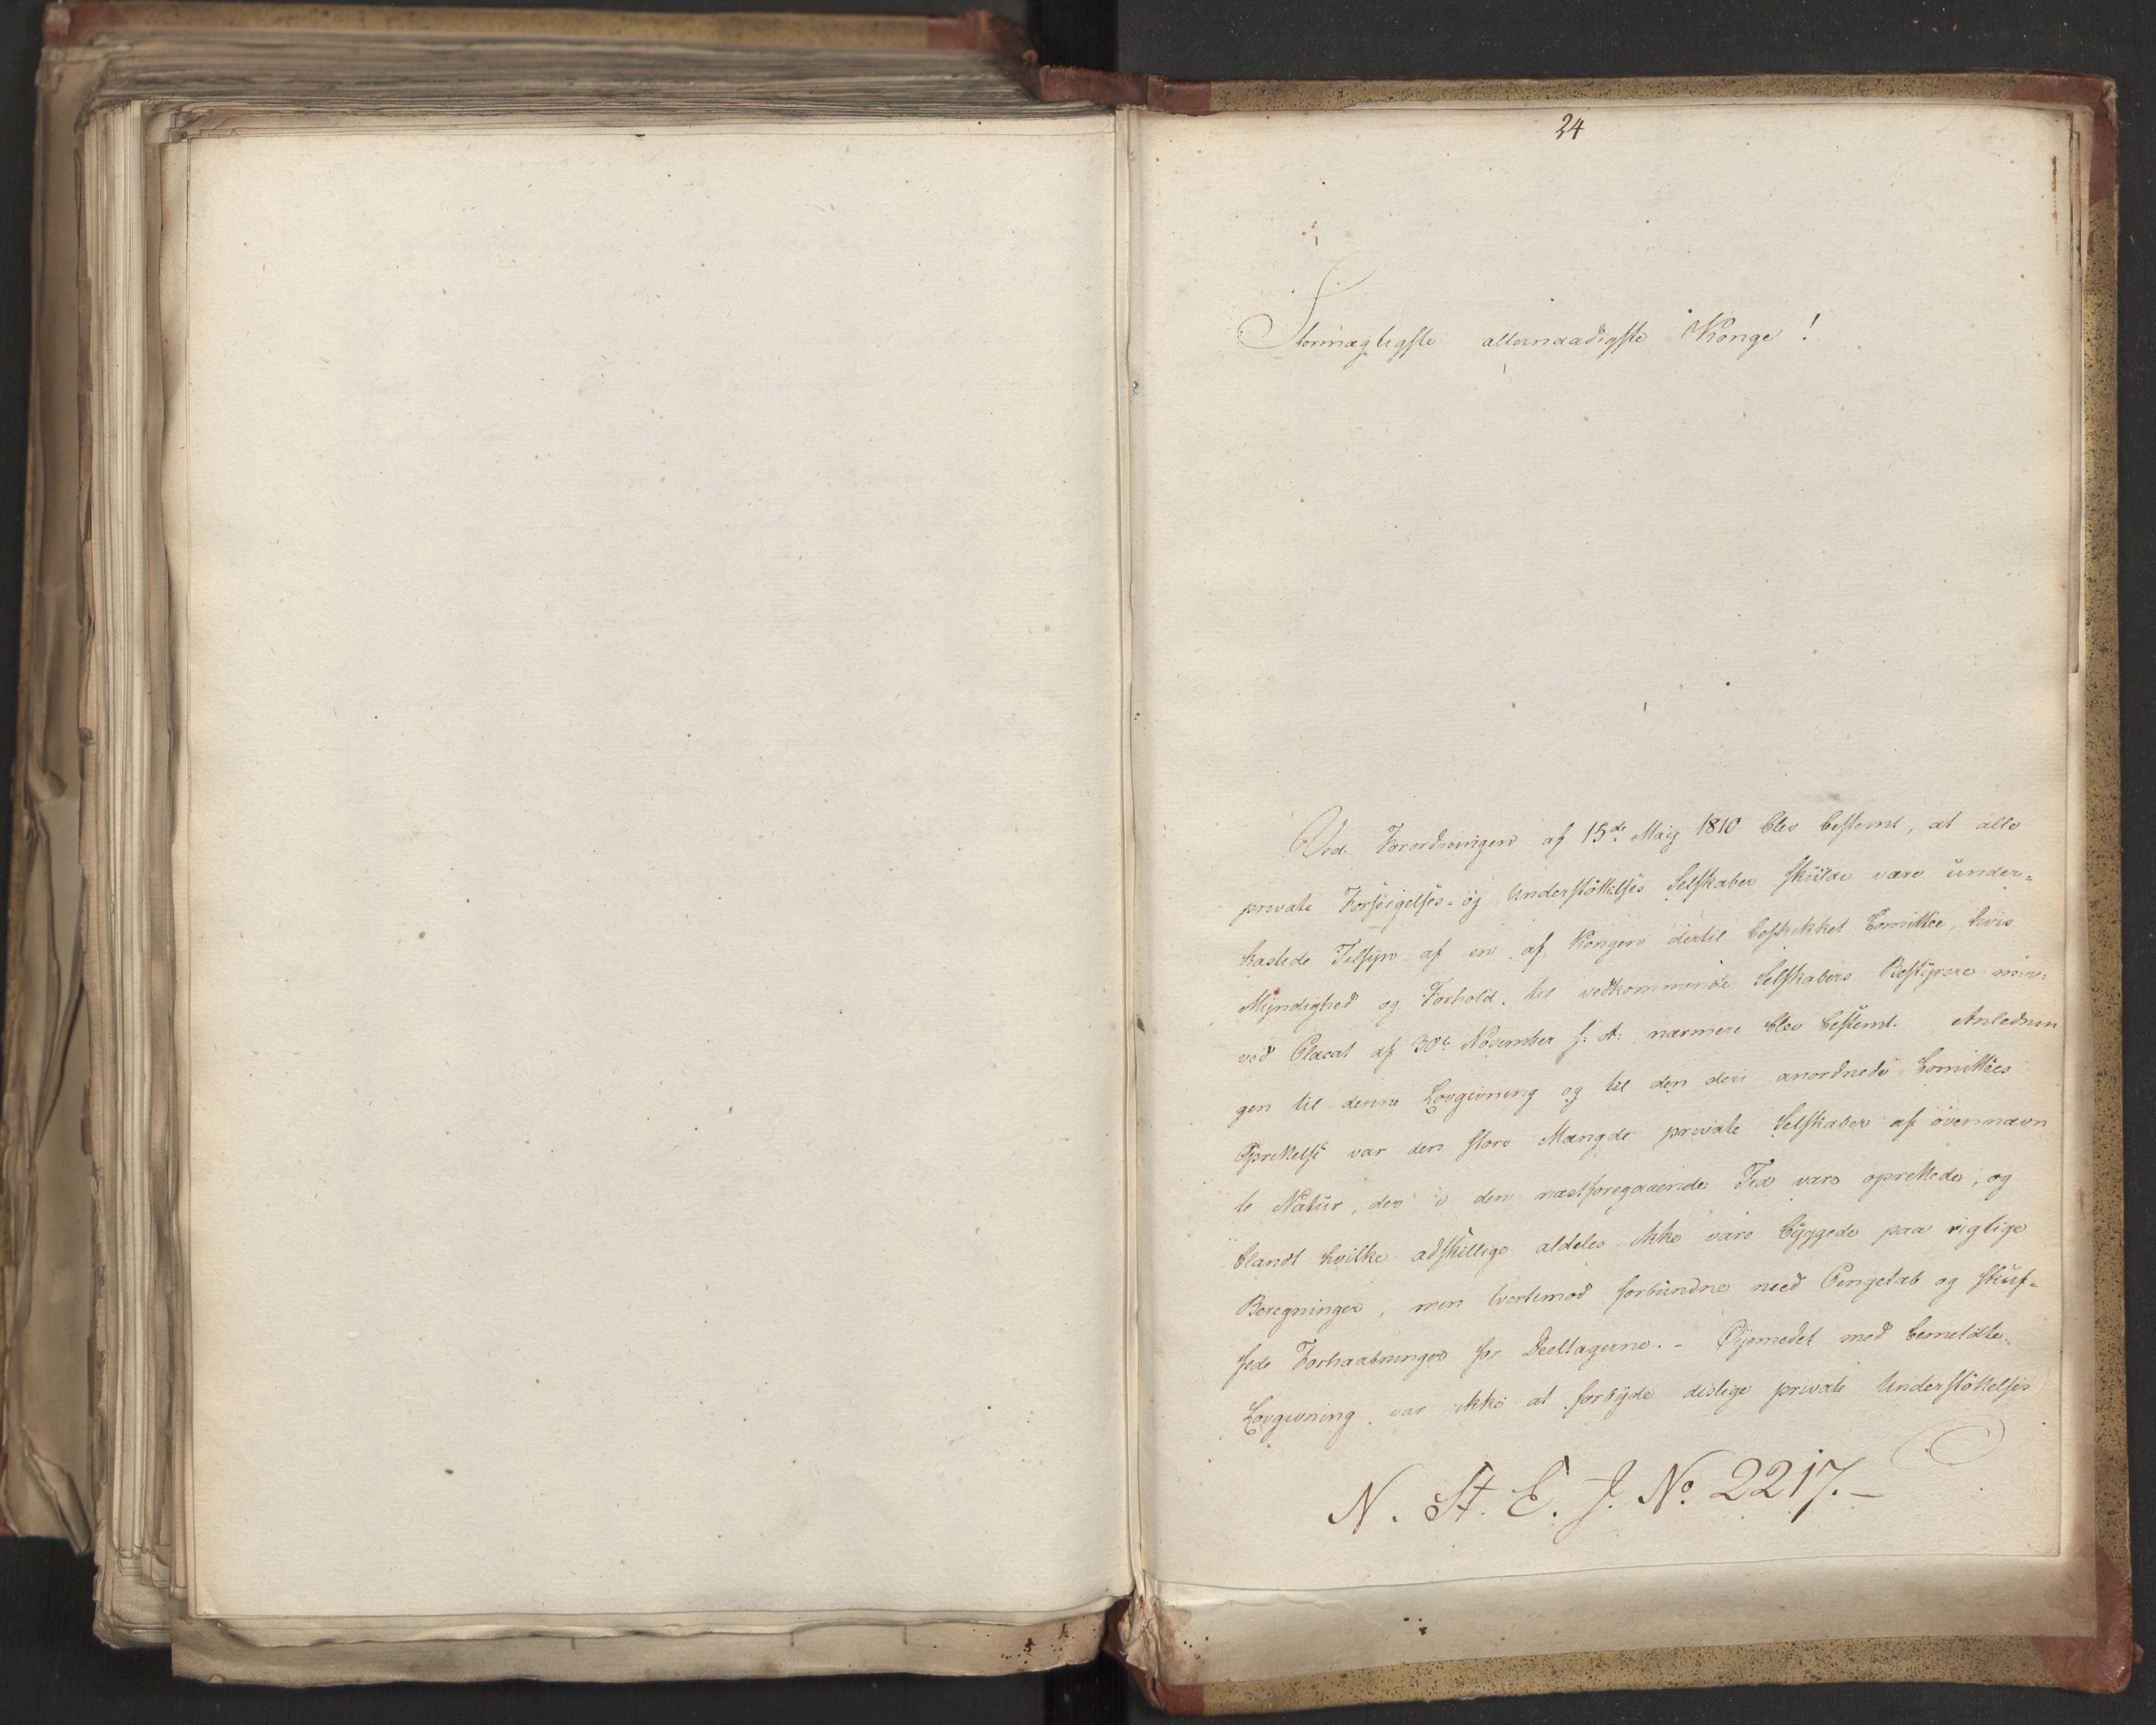 24
Stormægtigste allernaadigste Konge!
Ved Forordningen af 15de Maij 1810 blev bestemt, at alle
private Forsørgelses- og Understøttelses Selskaber skulde være under-
kastede Tilsyn af en af Kongen dertil beskikket Comittee, hvis
Myndighed og Forhold til vedkommende Selskabers Bestyrere
ved Placat af 30te November s: A: nærmere blev bestemt. Anlednin
gen til denne Lovgivning og til den deri anordnede Comittees
Oprettelse var den store Mængde private Selskaber af ovennævn
te Natur, der i den næstforegaaende Tid vare oprettede, og
blandt hvilke adskillige aldeles ikke vare byggede paa rigtige
Beregninger, men tvertimod forbundne med Pengetab og skuf-
fede Forhaabninger for Deeltagerne. - Øjemedet med bemeldte
Lovgivning var ikke at forbyde deslige private Understøttelses
N. St. E. J. No. 2217.-